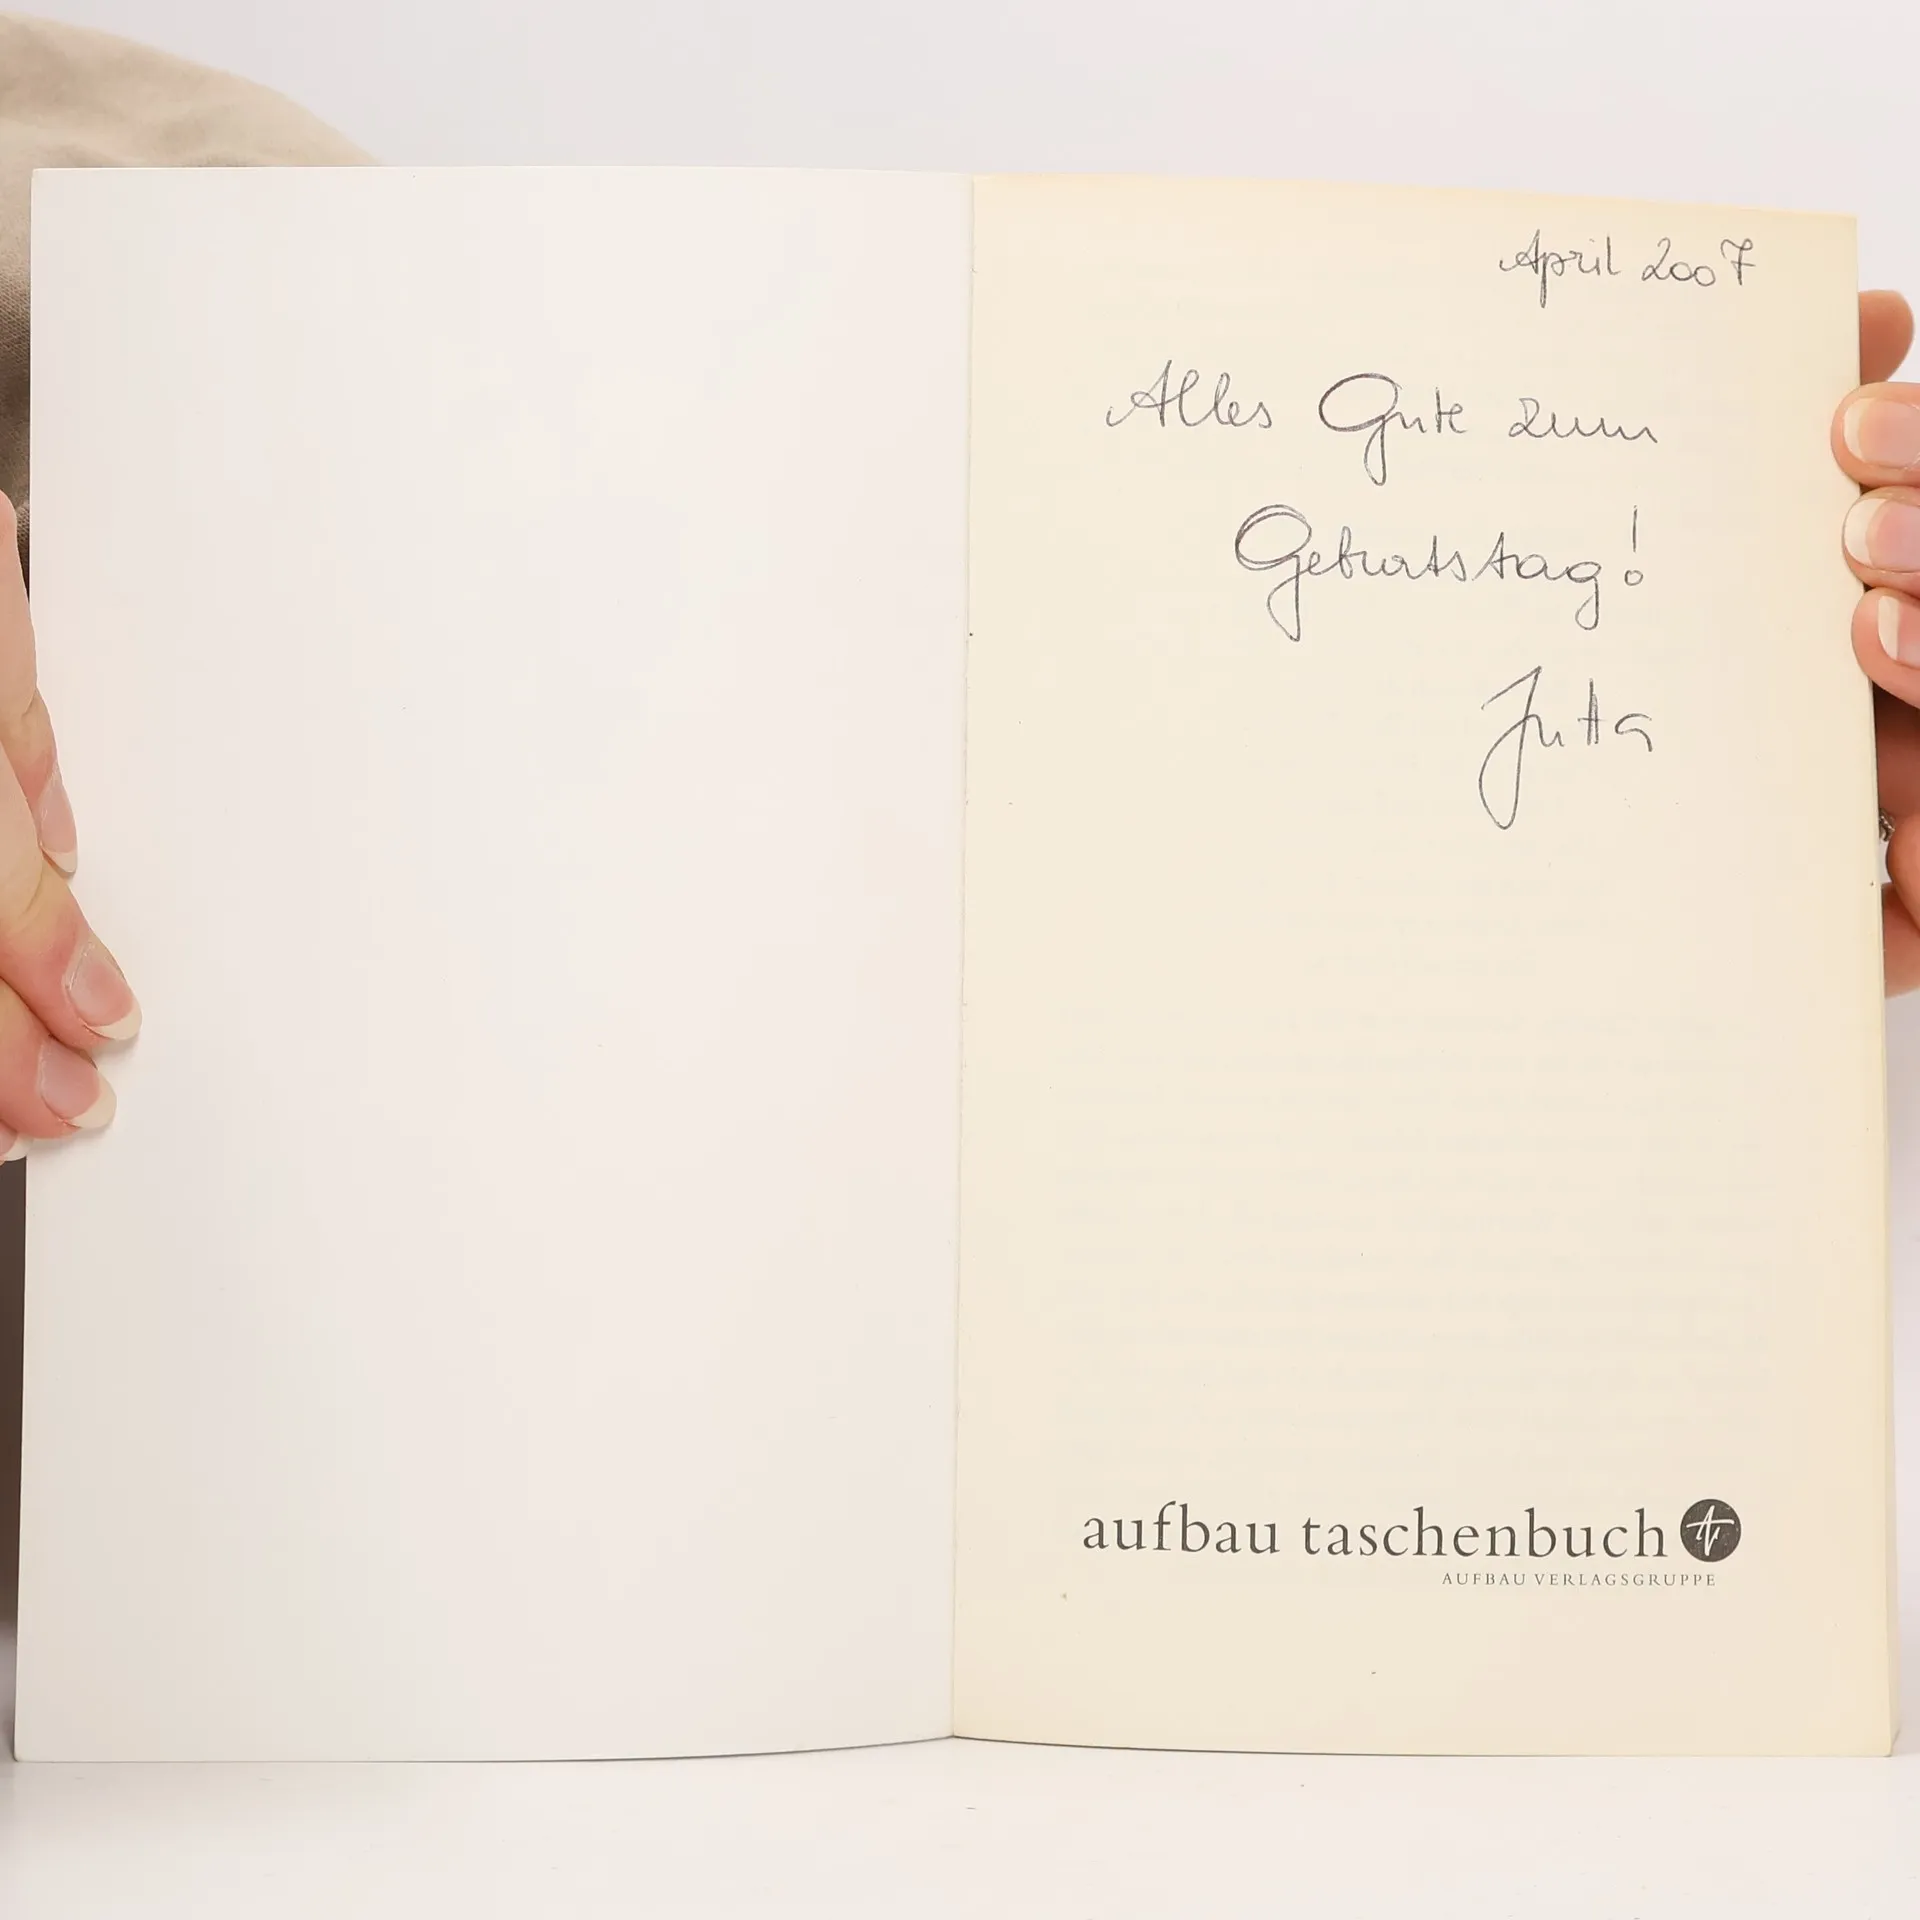 April 2007
Alles Gute zum
Geburtstag!
Jutta
aufbau taschenbuch
AUFBAU VERLAGSGRUPPE